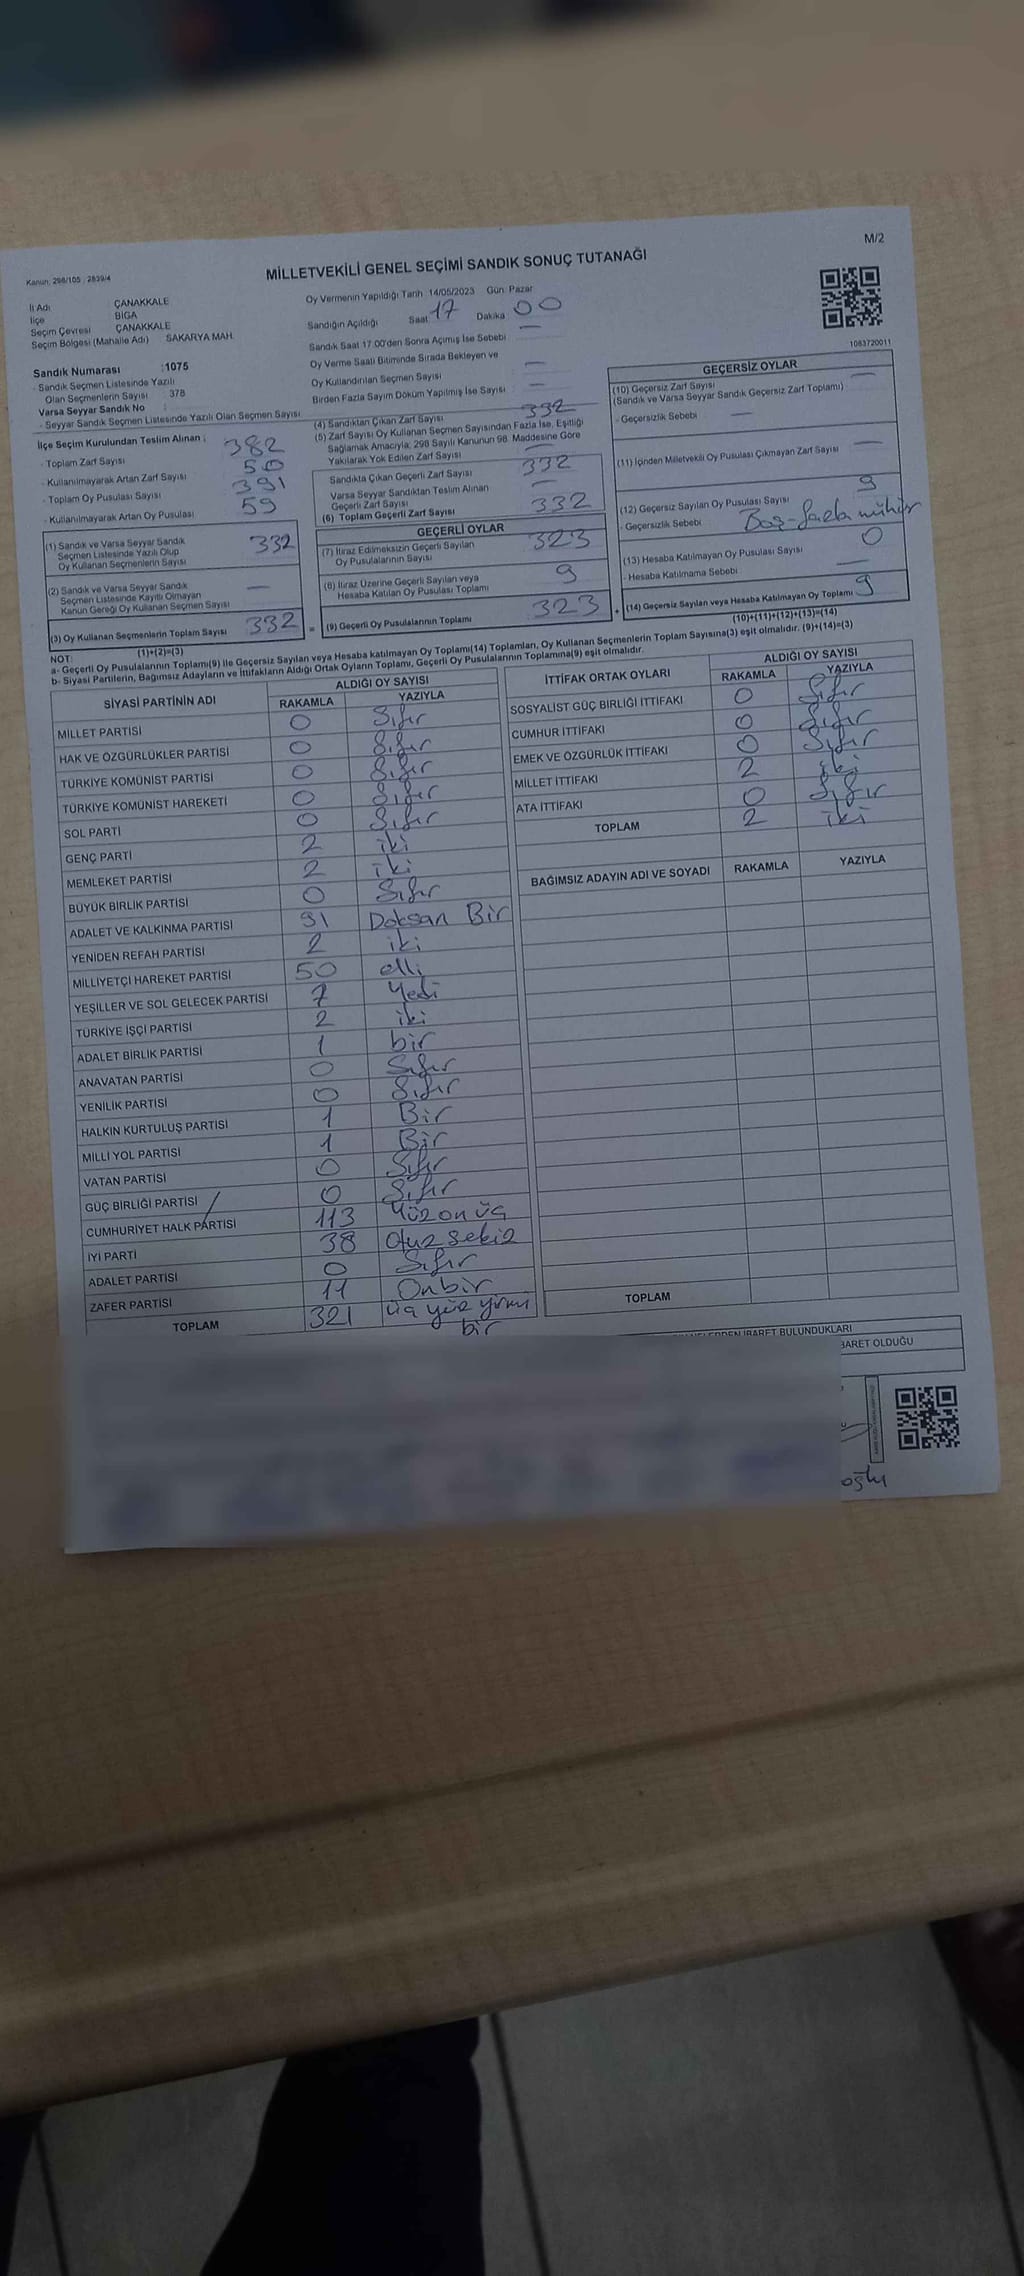 M/2
Kanun: 298/105 ; 2839/4
MİLLETVEKİLİ GENEL SEÇİMİ SANDIK SONUÇ TUTANAĞI
İl Adı ÇANAKKALE
İlçe BİGA
Seçim Çevresi ÇANAKKALE
Seçim Bölgesi (Mahalle Adı) SAKARYA MAH.
Sandık Numarası :1075
- Sandık Seçmen Listesinde Yazılı
Olan Seçmenlerin Sayısı : 378
Varsa Seyyar Sandık No :
- Seyyar Sandık Seçmen Listesinde Yazılı Olan Seçmen Sayısı
Oy Vermenin Yapıldığı Tarih 14/05/2023 Gün: Pazar
Sandığın Açıldığı Saat 17 Dakika 00
Sandık Saat 17:00'den Sonra Açılmış İse Sebebi —
Oy Verme Saati Bitiminde Sırada Bekleyen ve
Oy Kullandırılan Seçmen Sayısı —
Birden Fazla Sayım Döküm Yapılmış İse Sayısı —
1083720011
İlçe Seçim Kurulundan Teslim Alınan ;
- Toplam Zarf Sayısı 382
- Kullanılmayarak Artan Zarf Sayısı 50
- Toplam Oy Pusulası Sayısı 391
- Kullanılmayarak Artan Oy Pusulası 59
(1) Sandık ve Varsa Seyyar Sandık
Seçmen Listesinde Yazılı Olup
Oy Kullanan Seçmenlerin Sayısı 332
(2) Sandık ve Varsa Seyyar Sandık
Seçmen Listesinde Kayıtlı Olmayan
Kanun Gereği Oy Kullanan Seçmen Sayısı —
(3) Oy Kullanan Seçmenlerin Toplam Sayısı 332
(1)+(2)=(3)
(4) Sandıktan Çıkan Zarf Sayısı 332
(5) Zarf Sayısı Oy Kullanan Seçmen Sayısından Fazla İse, Eşitliği
Sağlamak Amacıyla, 298 Sayılı Kanunun 98. Maddesine Göre
Yakılarak Yok Edilen Zarf Sayısı —
Sandıkta Çıkan Geçerli Zarf Sayısı 332
Varsa Seyyar Sandıktan Teslim Alınan
Geçerli Zarf Sayısı —
(6) Toplam Geçerli Zarf Sayısı 332
GEÇERLİ OYLAR
(7) İtiraz Edilmeksizin Geçerli Sayılan
Oy Pusulalarının Sayısı 323
(8) İtiraz Üzerine Geçerli Sayılan veya
Hesaba Katılan Oy Pusulası Toplamı 9
= (9) Geçerli Oy Pusulalarının Toplamı 323 +
GEÇERSİZ OYLAR
(10) Geçersiz Zarf Sayısı —
(Sandık ve Varsa Seyyar Sandık Geçersiz Zarf Toplamı)
- Geçersizlik Sebebi —
(11) İçinden Milletvekili Oy Pusulası Çıkmayan Zarf Sayısı —
(12) Geçersiz Sayılan Oy Pusulası Sayısı 9
- Geçersizlik Sebebi Boş-fazla mühür
(13) Hesaba Katılmayan Oy Pusulası Sayısı 0
- Hesaba Katılmama Sebebi —
(14) Geçersiz Sayılan veya Hesaba Katılmayan Oy Toplamı 9
(10)+(11)+(12)+(13)=(14)
NOT:
a- Geçerli Oy Pusulalarının Toplamı(9) ile Geçersiz Sayılan veya Hesaba katılmayan Oy Toplamı(14) Toplamları, Oy Kullanan Seçmenlerin Toplam Sayısına(3) eşit olmalıdır. (9)+(14)=(3)
b- Siyasi Partilerin, Bağımsız Adayların ve İttifakların Aldığı Ortak Oyların Toplamı, Geçerli Oy Pusulalarının Toplamına(9) eşit olmalıdır.
SİYASİ PARTİNİN ADI ALDIĞI OY SAYISI
RAKAMLA YAZIYLA
MİLLET PARTİSİ 0 Sıfır
HAK VE ÖZGÜRLÜKLER PARTİSİ 0 Sıfır
TÜRKİYE KOMÜNİST PARTİSİ 0 Sıfır
TÜRKİYE KOMÜNİST HAREKETİ 0 Sıfır
SOL PARTİ 0 Sıfır
GENÇ PARTİ 2 iki
MEMLEKET PARTİSİ 2 iki
BÜYÜK BİRLİK PARTİSİ 0 Sıfır
ADALET VE KALKINMA PARTİSİ 91 Doksan Bir
YENİDEN REFAH PARTİSİ 2 iki
MİLLİYETÇİ HAREKET PARTİSİ 50 elli
YEŞİLLER VE SOL GELECEK PARTİSİ 7 Yedi
TÜRKİYE İŞÇİ PARTİSİ 2 iki
ADALET BİRLİK PARTİSİ 1 bir
ANAVATAN PARTİSİ 0 Sıfır
YENİLİK PARTİSİ 0 Sıfır
HALKIN KURTULUŞ PARTİSİ 1 Bir
MİLLİ YOL PARTİSİ 1 Bir
VATAN PARTİSİ 0 Sıfır
GÜÇ BİRLİĞİ PARTİSİ 0 Sıfır
CUMHURİYET HALK PARTİSİ 113 Yüz on üç
İYİ PARTİ 38 Otuz sekiz
ADALET PARTİSİ 0 Sıfır
ZAFER PARTİSİ 11 Onbir
TOPLAM 321 üç yüz yirmi
bir
İTTİFAK ORTAK OYLARI ALDIĞI OY SAYISI
RAKAMLA YAZIYLA
SOSYALİST GÜÇ BİRLİĞİ İTTİFAKI 0 Sıfır
CUMHUR İTTİFAKI 0 Sıfır
EMEK VE ÖZGÜRLÜK İTTİFAKI 0 Sıfır
MİLLET İTTİFAKI 2 iki
ATA İTTİFAKI 0 Sıfır
TOPLAM 2 iki
BAĞIMSIZ ADAYIN ADI VE SOYADI RAKAMLA YAZIYLA
TOPLAM
İBARET BULUNDUKLARI
BARET OLDUĞU
oğlu